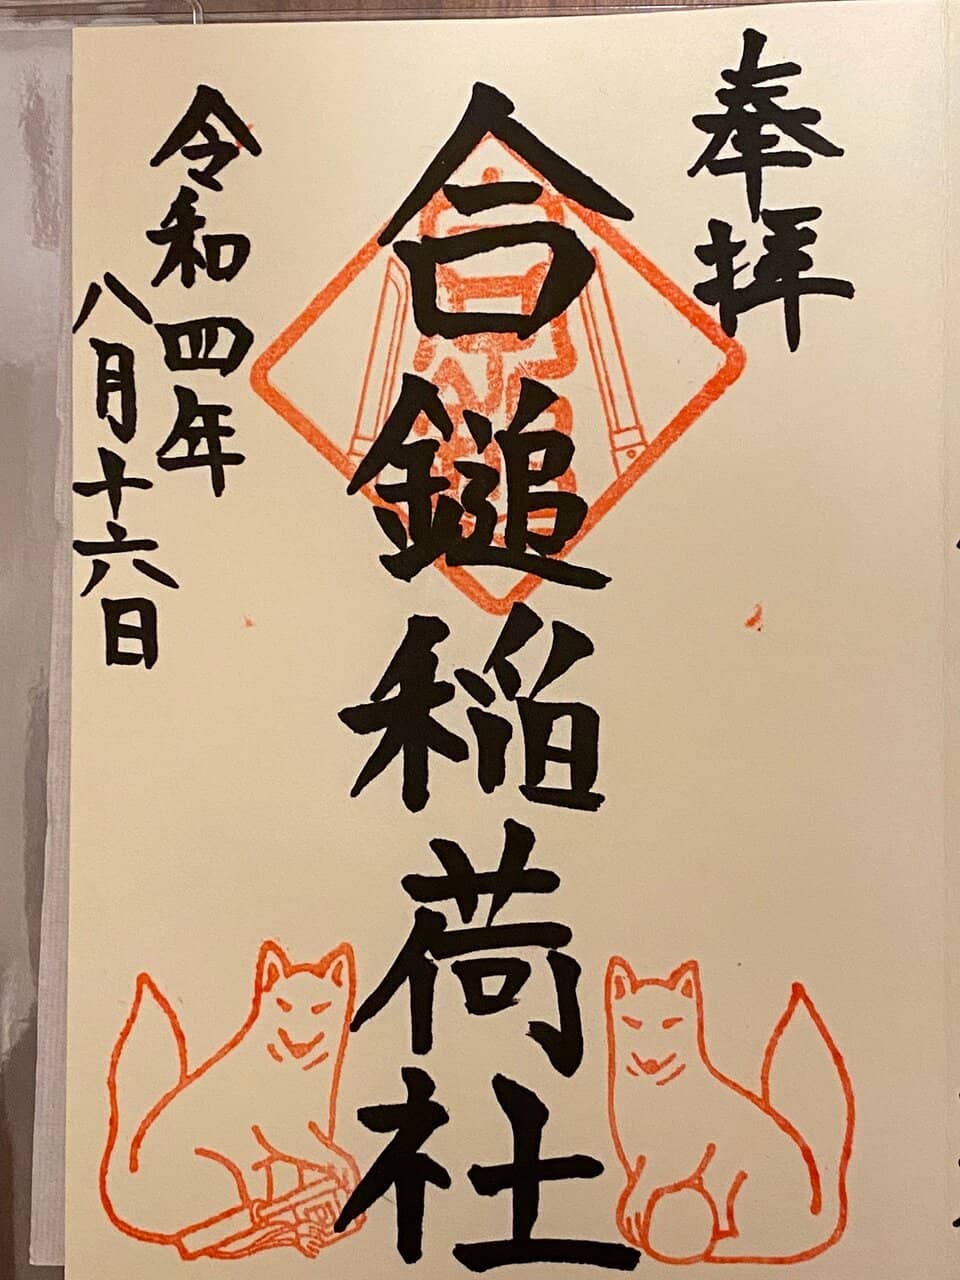 奉拝
合鎚稲荷社
令和四年
八月十六日